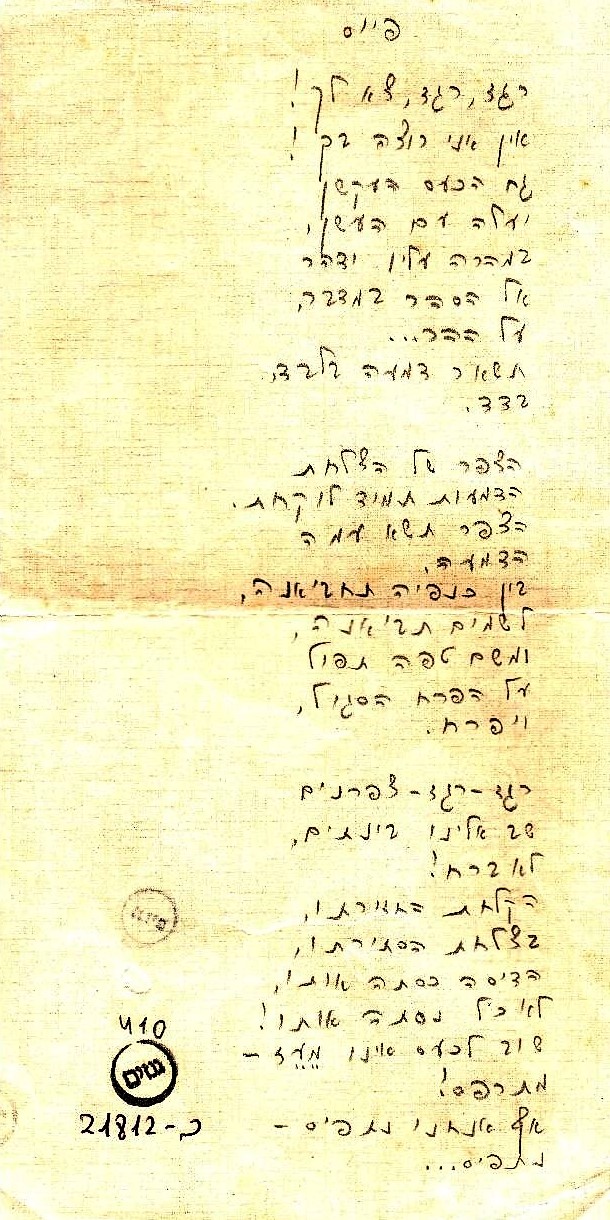 פייס
רגז, רגז, צא לך!
אין אני רוצה בך!
גח הכעס העקשן
יעלה עם העשן,
במהרה עליו ידהר
אל הסהר במדבר,
על ההר...
תשאר דמעה בלבד,
בדד.
הצפר של הצלחת
הדמעות תמיד לוקחת.
הצפר תשא עמה
הדמעה,
בין כנפיה תחביאנה,
לשמים תביאנה,
ומשם טפה תפול
על הפרח הסגול,
ויפרח.
רגז-רגז-צפרנים
שב אלינו בינתים,
לא ברח!
הקלחת החזירתו,
בצלחת הסתירתו,
הדיסה כסתה אותו,
לא כל נסתה אותו!
שוב לכעס אינו מעז -
מתרפס!
אף אנחנו נתפיס -
נתפיס...
410
גנזים
כ-21812